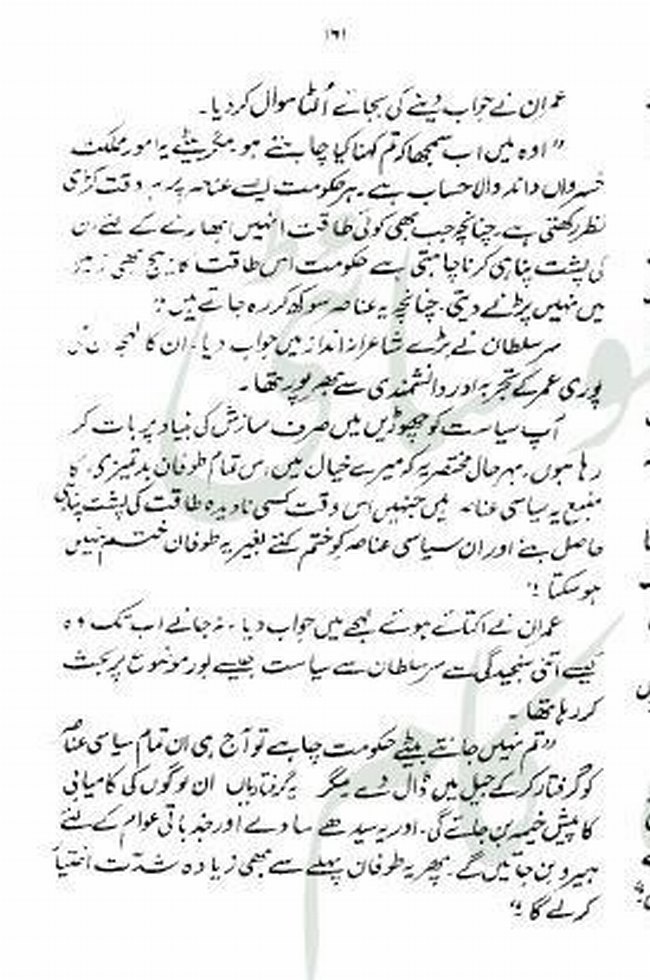 ۱۶۱
عمران نے جواب دینے کی بجائے اُلٹا سوال کر دیا۔
" اوہ میں اب سمجھا کہ تم کہنا کیا چاہتے ہو۔ مگر بیٹے یہ امور مملکت
خسرواں داند والا حساب ہے۔ ہر حکومت ایسے عناصر پر ہر وقت کڑی
نظر رکھتی ہے۔ چنانچہ جب بھی کوئی طاقت انہیں ابھارنے کے لئے ان
کی پشت پناہی کرنا چاہتی ہے حکومت اس طاقت کا بیج بھی زمین
میں نہیں پڑنے دیتی۔ چنانچہ یہ عناصر سوکھ کر رہ جاتے ہیں "
سر سلطان نے بڑے شاعرانہ انداز میں جواب دیا۔ ان کا لہجہ ان کی
پوری عمر کے تجربہ اور دانشمندی سے بھرپور تھا۔
آپ سیاست کو چھوڑیں میں صرف سازش کی بنیاد پر بات کر
رہا ہوں۔ بہر حال مختصر یہ کہ میرے خیال میں اس تمام طوفان بدتمیزی کا
منبع یہ سیاسی عناصر ہیں جنہیں اس وقت کسی نادیدہ طاقت کی پشت پناہی
حاصل ہے اور ان سیاسی عناصر کو ختم کئے بغیر یہ طوفان ختم نہیں
ہو سکتا "
عمران نے اکتائے ہوئے لہجے میں جواب دیا۔ نہ جانے اب تک وہ
کیسے اتنی سنجیدگی سے سر سلطان سے سیاست جیسے بور موضوع پر بحث
کر رہا تھا۔
" تم نہیں جانتے بیٹے حکومت چاہے تو آج ہی ان تمام سیاسی عناصر
کو گرفتار کر کے جیل میں ڈال دے مگر یہ گرفتاریاں ان لوگوں کی کامیابی
کا پیش خیمہ بن جائے گی۔ اور یہ سیدھے سادے اور جذباتی عوام کے لئے
ہیرو بن جائیں گے۔ پھر یہ طوفان پہلے سے بھی زیادہ شدّت اختیار
کر لے گا "